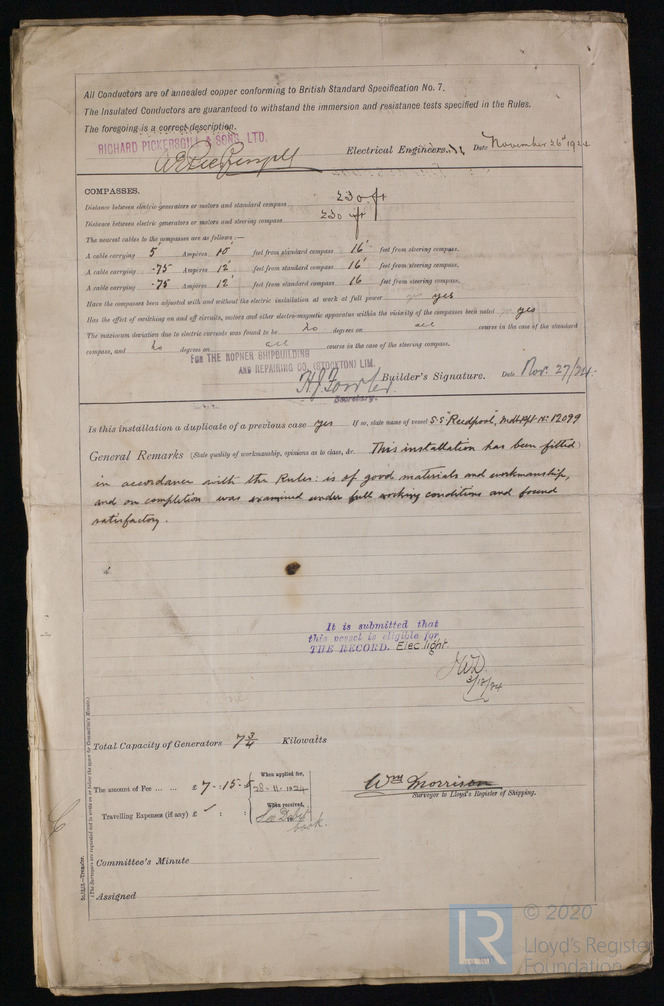 All Conductors are of annealed copper conforming to British Standard Specification No. 7.
The Insulated Conductors are guaranteed to withstand the immersion and resistance tests specified in the Rules.
The foregoing is a correct description.
RICHARD PICKERSGILL & SONS, LTD.
Electrical Engineers. Date November 26th 1924
COMPASSES.
Distance between electric generators or motors and standard compass 230 ft
Distance between electric generators or motors and steering compass 230 ft
The nearest cables to the compasses are as follows:—
A cable carrying 5 Ampères 10' feet from standard compass 16' feet from steering compass.
A cable carrying .75 Ampères 12' feet from standard compass 16' feet from steering compass.
A cable carrying .75 Ampères 12' feet from standard compass 16 feet from steering compass.
Have the compasses been adjusted with and without the electric installation at work at full power yes
Has the effect of switching on and off circuits, motors and other electro-magnetic apparatus within the vicinity of the compasses been noted yes
The maximum deviation due to electric currents was found to be No degrees on all course in the case of the standard
compass, and No degrees on all course in the case of the steering compass.
FOR THE ROPNER SHIPBUILDING
AND REPAIRING CO. (STOCKTON) LIM.
Builder's Signature. Date Nov. 27/24.
Secretary.
Is this installation a duplicate of a previous case yes If so, state name of vessel S.S "Reedpool", Mdb Rpt No 12099
General Remarks (State quality of workmanship, opinions as to class, &c. This installation has been fitted)
in accordance with the Rules: is of good materials and workmanship,
and on completion was examined under full working conditions and found
satisfactory.
It is submitted that
this vessel is eligible for
THE RECORD. Elec light.
3/12/24
Total Capacity of Generators 7 3/4 Kilowatts
The amount of Fee ... ... £ 7 : 15 : 5
When applied for,
28.11.1924
When received,
Travelling Expenses (if any) £ : :
Wm Morrison
Surveyor to Lloyd's Register of Shipping.
Committee's Minute
Assigned
(The Surveyors are requested not to write on or below the space for Committee's Minute.)
LR
© 2020
Lloyd's Register
Foundation